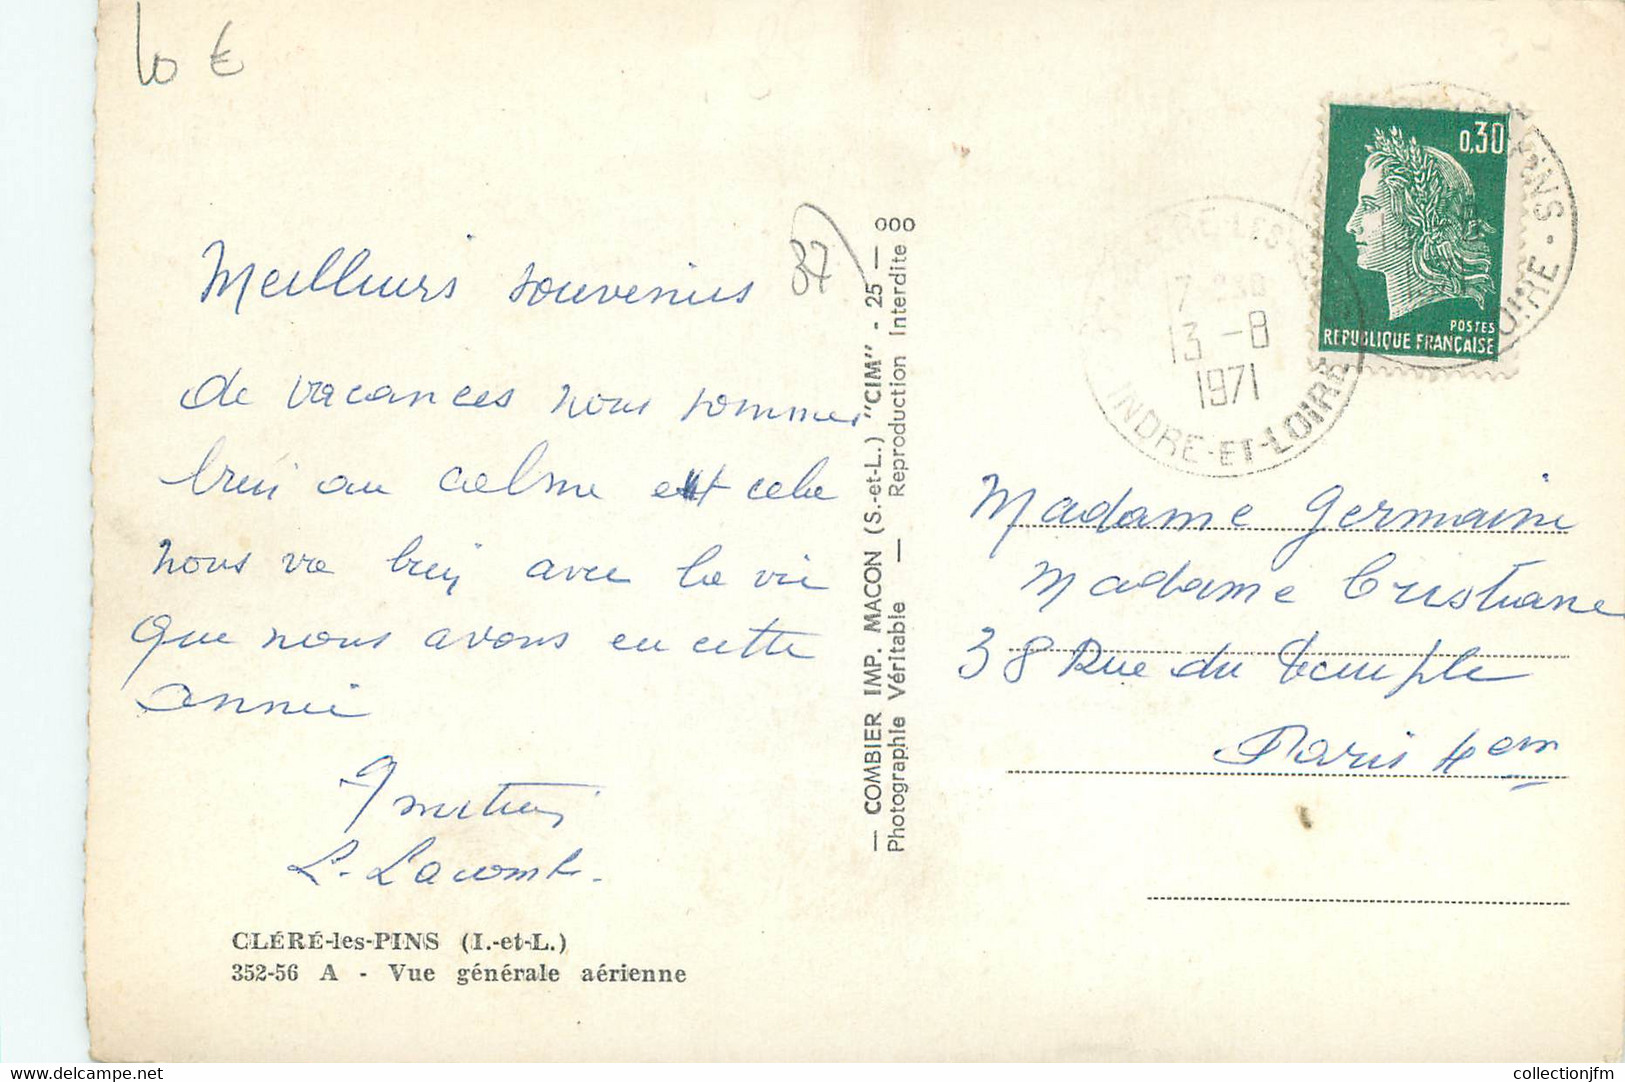 10 €
37
Meilleurs souvenirs
de vacances nous sommes
bien au calme et cela
nous va bien avec la vie
que nous avons eu cette
année
L. Lacomb.
CLÉRÉ-les-PINS (I.-et-L.)
352-56 A - Vue générale aérienne
— COMBIER IMP. MACON (S.-et-L.) "CIM" - 25 — ooo
Photographie Véritable — Reproduction Interdite
0,30
POSTES
REPUBLIQUE FRANÇAISE
13 -8
1971
INDRE-ET-LOIRE
Madame Germaine
Madame Cristiane
38 Rue du Temple
Paris 4em
www.delcampe.net
collectionjfm